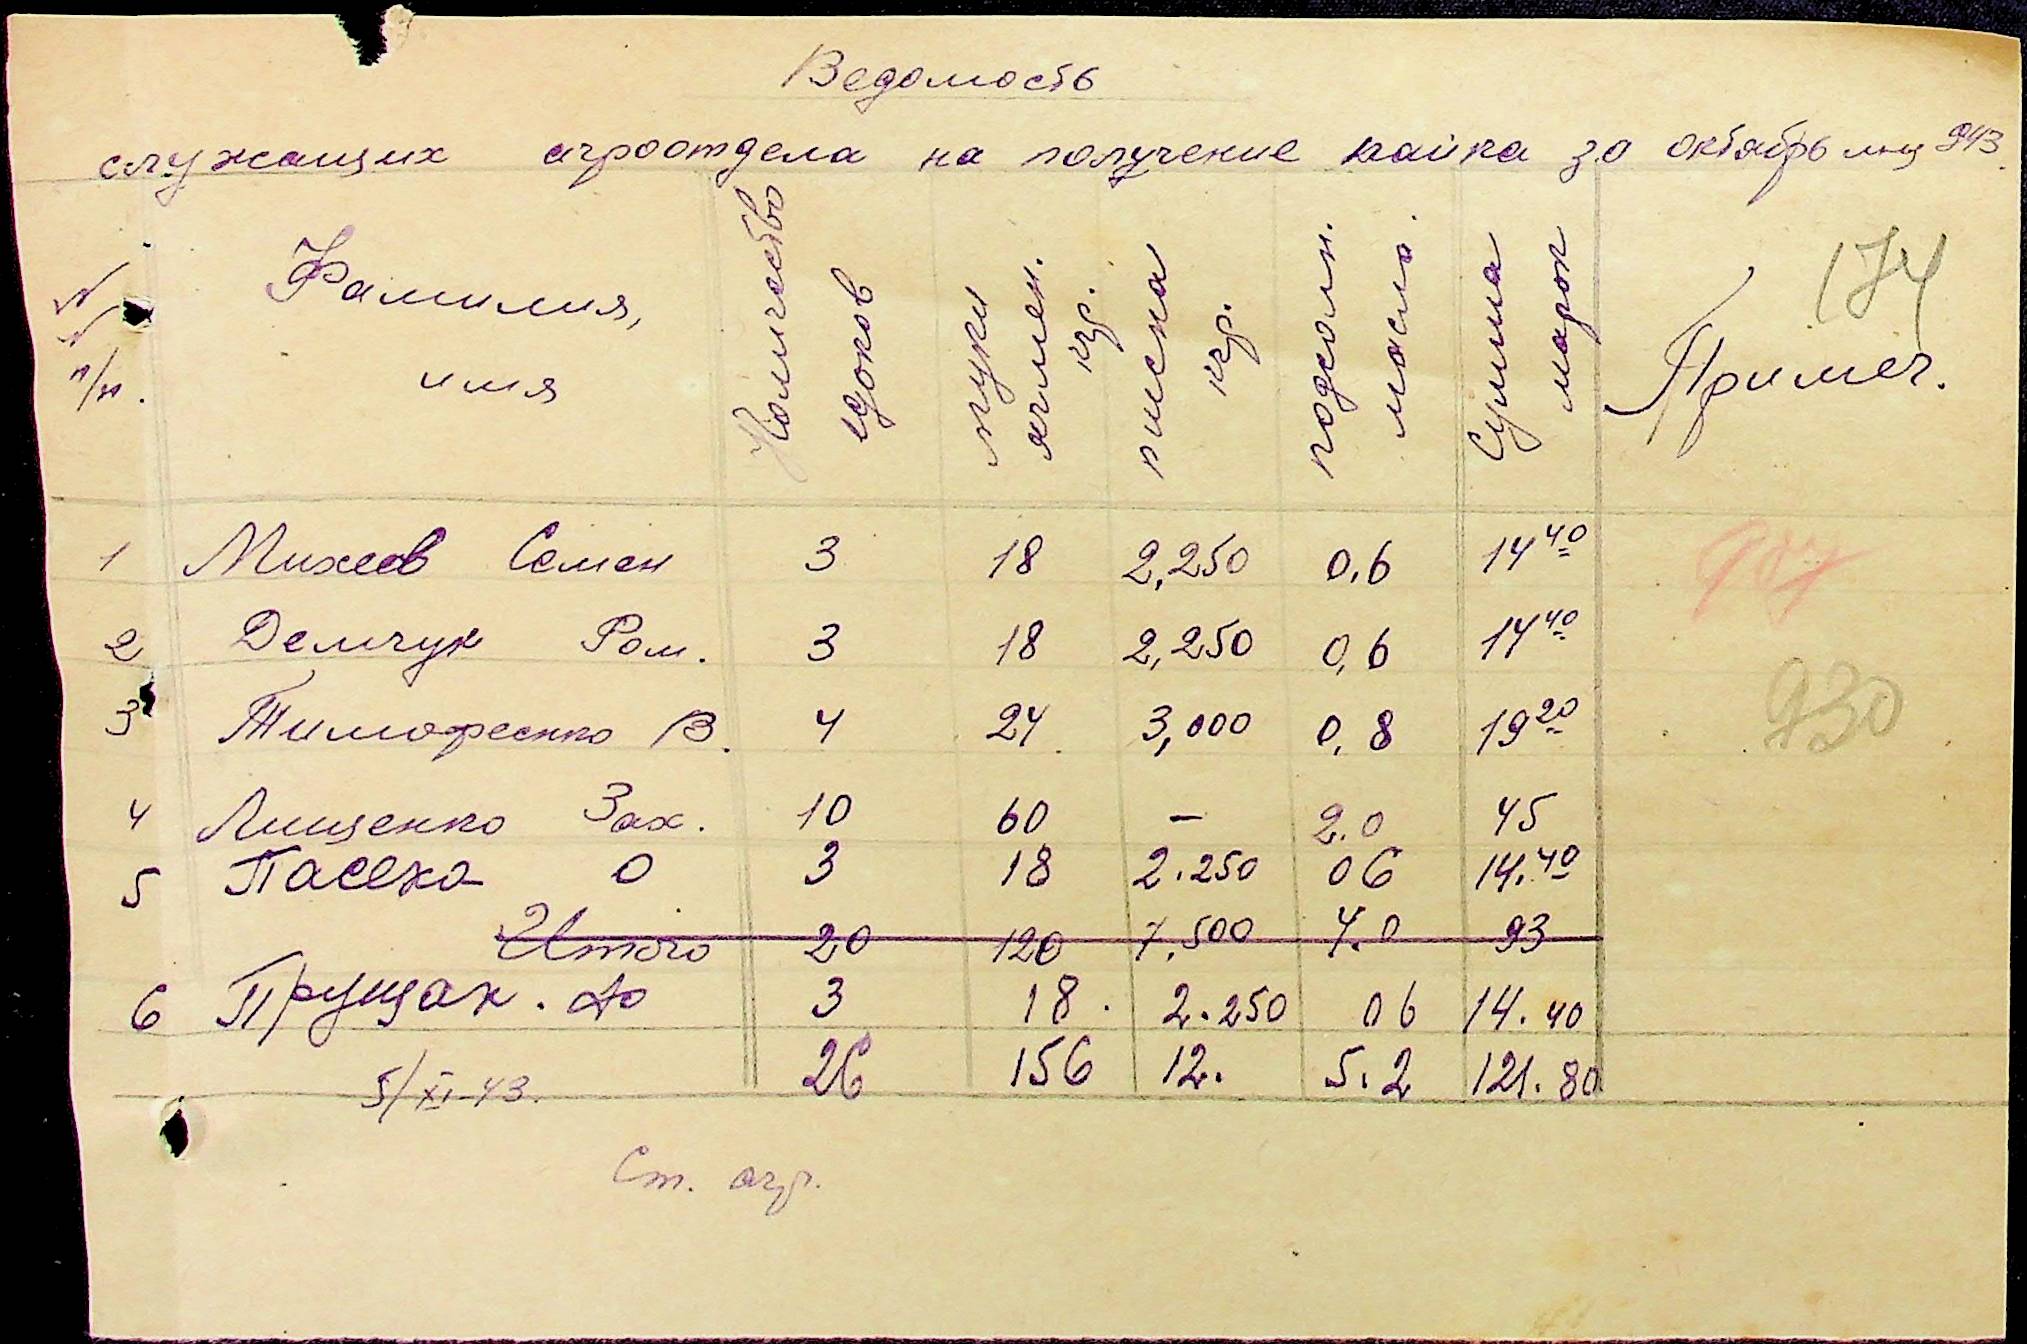 Ведомость
служащих агроотдела на получение пайка за октябрь м-ц 943.
№ № п/п. Фамилия, имя Количество едоков муки ячмен. кгр. пшена кгр. подсолн. масла. Сумма марок Примеч. 174
1 Михеев Семен 3 18 2,250 0,6 14 40
2 Демчук Ром. 3 18 2,250 0,6 14 40 930
3 Тимофеенко В. 4 24 3,000 0,8 19 20
4 Лищенко Зах. 10 60 – 2.0 45
5 Пасека О 3 18 2.250 06 14.40
Итого 20 120 7,500 4.0 93
6 Прущак. 3 18. 2.250 06 14.40
26 156 12. 5.2 121.80
5/XI-43.
Ст. агр.